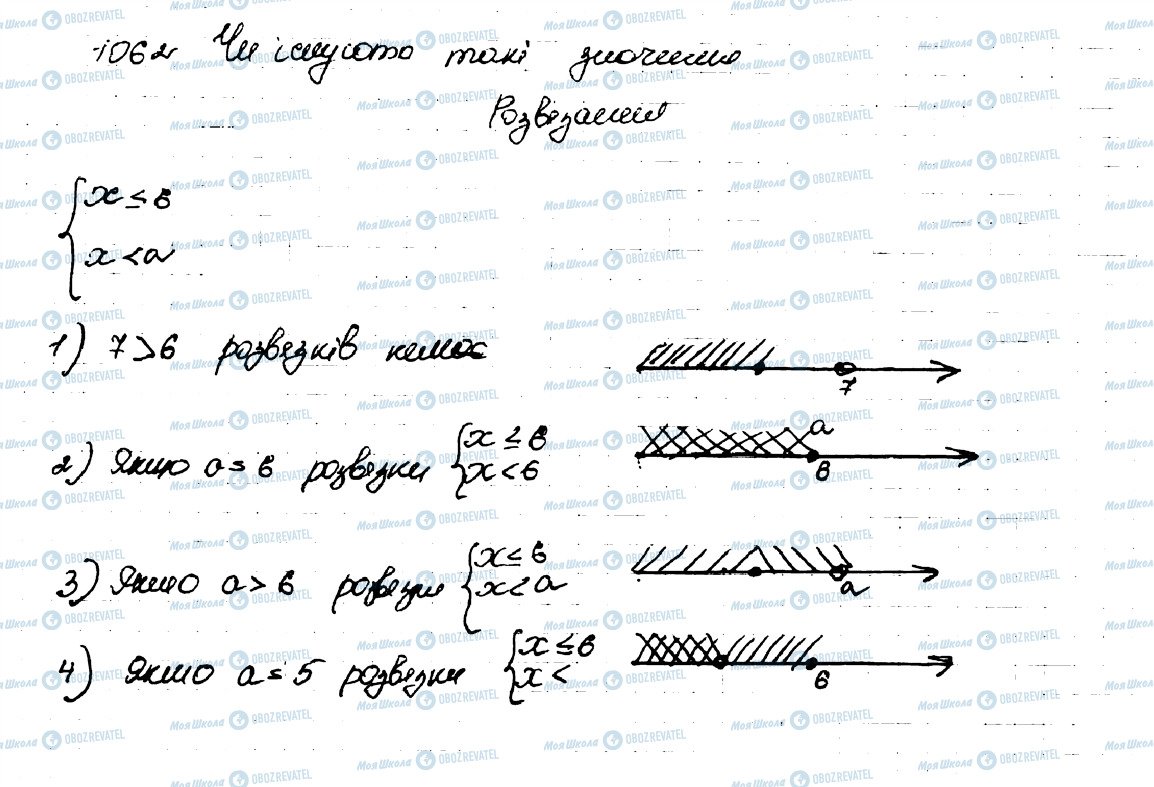 1062 Чи існують такі значення
Розвезання
{ x ≤ 6
x < a
1) 7 > 6 розвезків немає
7
2) Якшо a = 6 розвезки { x ≤ 6
x < 6
a
6
3) Якшо a > 6 розвезки { x ≤ 6
x < a
a
4) Якшо a = 5 розвезки { x ≤ 6
x <
6
Моя Школа OBOZREVATEL